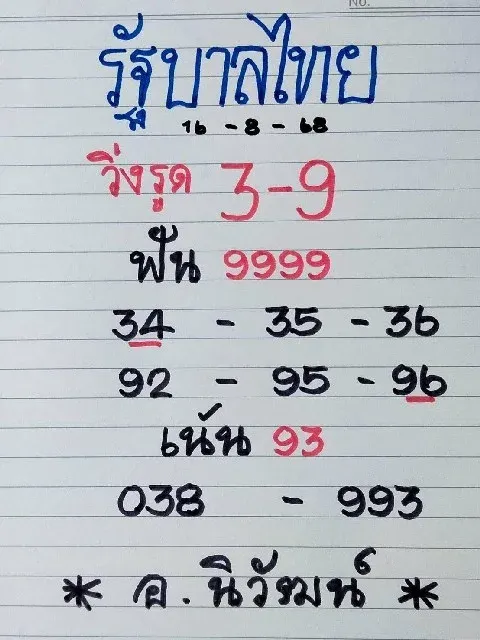 No.
รัฐบาลไทย
16 - 8 - 68
วิ่งรูด 3-9
ฟัน 9999
34 - 35 - 36
92 - 95 - 96
เน้น 93
038 - 993
* อ. นิวัฒน์ *